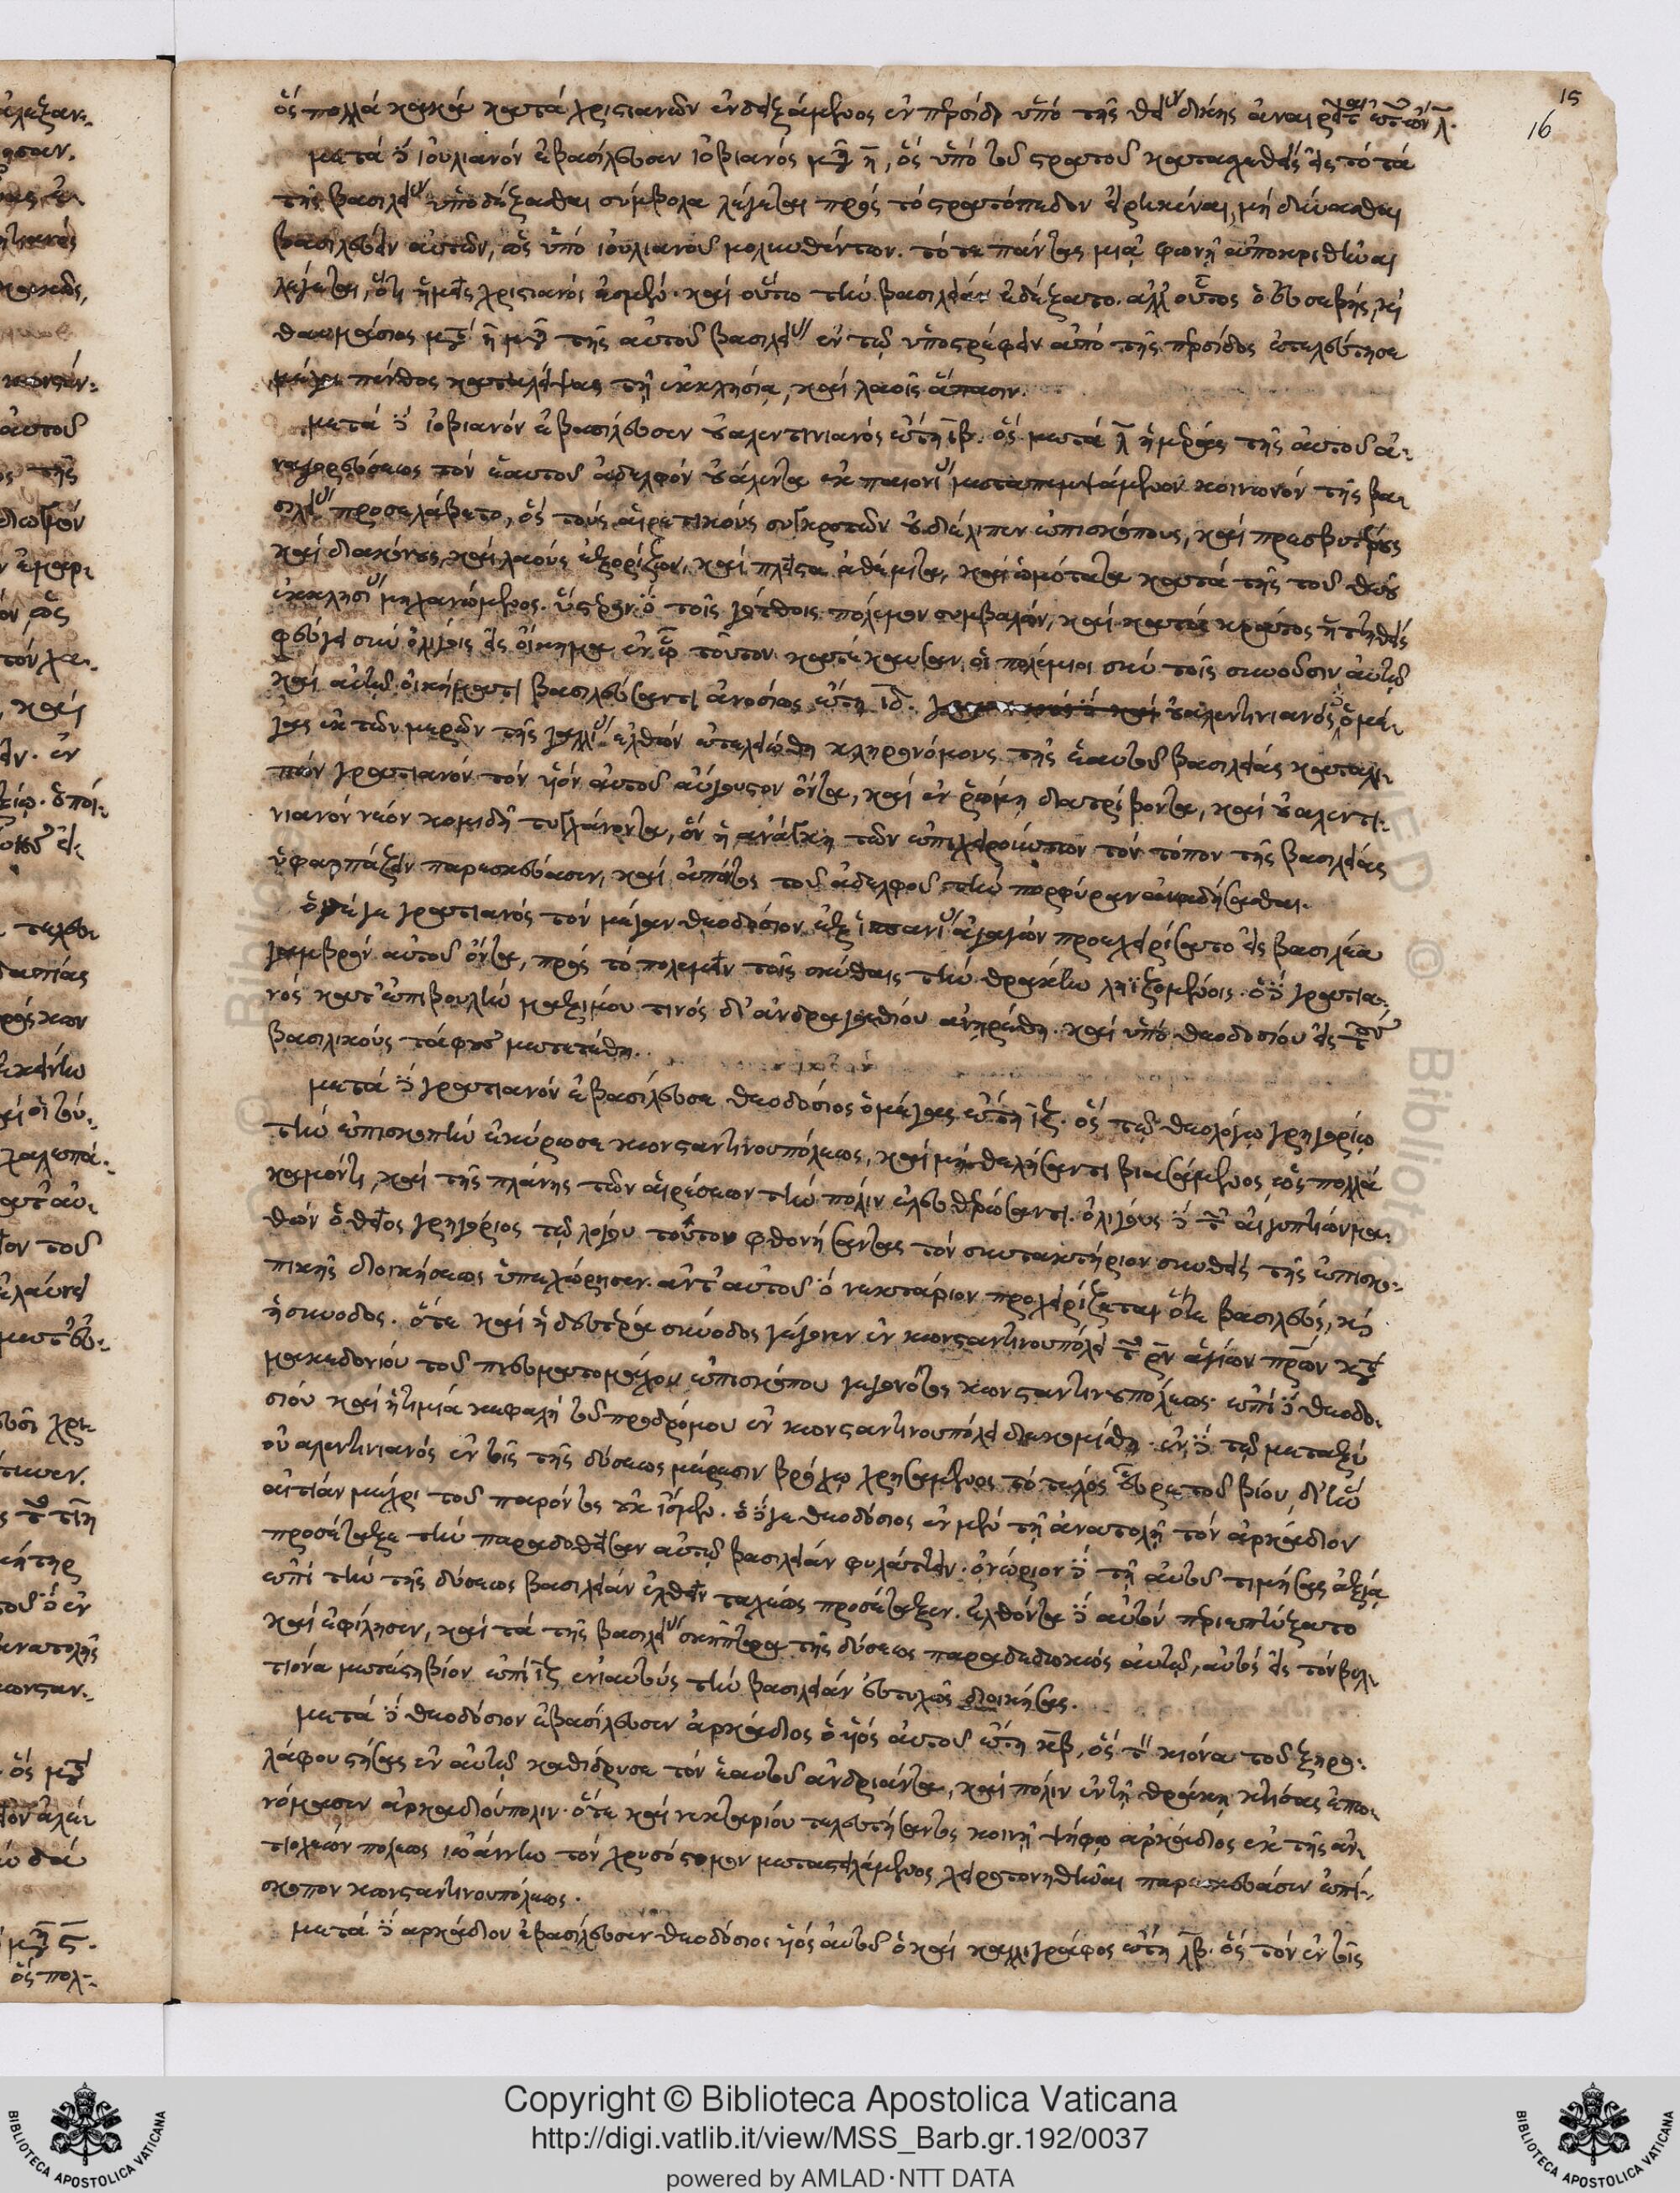 15
16
ὃς πολλὰ κακὰ κατὰ χριστιανῶν ἐνδειξάμενος ἐν περσίδι ὑπὸ τῆς θείας δίκης ἀναιρεῖται ἐτῶν λ.
μετὰ δὲ ἰουλιανὸν ἐβασίλευσεν ἰοβιανὸς μῆνας η, ὃς ὑπὸ τοῦ στρατοῦ καταχθεὶς εἰς τὸ τὰ
τῆς βασιλείας ὑποδέξασθαι σύμβολα λέγεται πρὸς τὸ στρατόπεδον εἰρηκέναι, μὴ δύνασθαι
βασιλεύειν αὐτῶν, ὡς ὑπὸ ἰουλιανοῦ μολυνθέντων. τότε πάντας μιᾷ φωνῇ ἀποκριθῆναι
λέγεται, ὅτι ἡμεῖς χριστιανοί ἐσμεν. καὶ οὕτω τὴν βασιλείαν ἐδέξατο. ἀλλ' οὗτος ὁ εὐσεβὴς, καὶ
θαυμάσιος μετὰ η μῆνας τῆς αὐτοῦ βασιλείας ἐν τῷ ὑποστρέφειν ἀπὸ τῆς περσίδος ἐτελεύτησε
μέγα πένθος καταλείψας τῇ ἐκκλησίᾳ, καὶ λαοῖς ἅπασιν.
μετὰ δὲ ἰοβιανὸν ἐβασίλευσεν οὐαλεντινιανὸς ἔτη ιβ. ὃς μετὰ λ ἡμέρας τῆς αὐτοῦ ἀ-
ναγορεύσεως τὸν ἑαυτοῦ ἀδελφὸν οὐάλεντα ἐκ παιονίας μεταπεμψάμενον κοινωνὸν τῆς βα-
σιλείας προσελάβετο, ὃς τοὺς αἱρετικοὺς συγκροτῶν οὐ διέλιπεν ἐπισκόπους, καὶ πρεσβυτέρους
καὶ διακόνους, καὶ λαοὺς ἐξορίζων, καὶ πλεῖστα ἀθέμιτα, καὶ ὠμότατα κατὰ τῆς τοῦ θεοῦ
ἐκκλησίας μηχανώμενος. ὕστερον δὲ τοῖς γότθοις πόλεμον συμβαλὼν, καὶ κατὰ κράτος ἡττηθεὶς
φεύγει σὺν ὀλίγοις εἰς οἴκημα ἐν ᾧ τοῦτον κατέκαυσαν οἱ πολέμιοι σὺν τοῖς συνοῦσιν αὐτῷ
καὶ αὐτῷ οἰκήματι βασιλεύσαντι ἀνοσίως ἔτη ιδ. οὐαλεντινιανὸς δὲ ὁ μέ-
γας ἐκ τῶν μερῶν τῆς γαλλίας ἐλθὼν ἐτελειώθη κληρονόμους τῆς ἑαυτοῦ βασιλείας καταλι-
πὼν γρατιανὸν τὸν υἱὸν αὐτοῦ αὔγουστον ὄντα, καὶ ἐν ῥώμῃ διατρίβοντα, καὶ οὐαλεντι-
νιανὸν νέον κομιδῇ τυγχάνοντα, ὃν ἡ ἀνάγκη τῶν ἐπιχειρούντων τὸν τόπον τῆς βασιλείας
ὑφαρπάζειν παρεσκεύασεν, καὶ ἀπόντος τοῦ ἀδελφοῦ τὴν πορφύραν ἀναδήσασθαι.
ὁ μέγε γρατιανὸς τὸν μέγαν θεοδόσιον ἐξ ἱσπανίας ἀγαγὼν προεχειρίσατο εἰς βασιλέα
γαμβρὸν αὐτοῦ ὄντα, πρὸς τὸ πολεμεῖν τοῖς σκύθαις τὴν θράκην ληϊζομένοις. ὁ δὲ γρατια-
νὸς κατ' ἐπιβουλὴν μαξίμου τινὸς δι' ἀνδραγαθίου ἀνῃρέθη. καὶ ὑπὸ θεοδοσίου εἰς τοὺς
βασιλικοὺς τάφους μετετέθη.
μετὰ δὲ γρατιανὸν ἐβασίλευσε θεοδόσιος ὁ μέγας ἔτη ιζ. ὃς τῷ θεολόγῳ γρηγορίῳ
τὴν ἐπισκοπὴν ἐκύρωσε κωνσταντινουπόλεως, καὶ μὴ θελήσαντι βιασάμενος ὡς πολλὰ
καμόντι, καὶ τῆς πλάνης τῶν αἱρέσεων τὴν πόλιν ἐλευθερώσαντι. ὀλίγους δὲ τῶν αἰγυπτίων μα-
θὼν ὁ θεῖος γρηγόριος τῷ λόγῳ τούτου φθονήσαντας τὸν συντακτήριον συνθεὶς τῆς ἐπισκο-
πικῆς διοικήσεως ὑπεχώρησεν. ἀντ' αὐτοῦ δὲ νεκτάριον προχειρίζεται ὅτε βασιλεὺς, καὶ
ἡ σύνοδος. ὅτε καὶ ἡ δευτέρα σύνοδος γέγονεν ἐν κωνσταντινουπόλει τῶν ρν ἁγίων πατέρων κατὰ
μακεδονίου τοῦ πνευματομάχου ἐπισκόπου γεγονότος κωνσταντινουπόλεως. ἐπὶ δὲ θεοδο-
σίου καὶ ἡ τιμία κεφαλὴ τοῦ προδρόμου ἐν κωνσταντινουπόλει διεκομίσθη. ἐν δὲ τῷ μεταξὺ
οὐαλεντινιανὸς ἐν τοῖς τῆς δύσεως μέρεσιν βρόχῳ χρησάμενος τὸ τέλος εὗρε τοῦ βίου, δι' ἣν
αἰτίαν μέχρι τοῦ παρόντος οὐκ ἴσμεν. ὁ δέ γε θεοδόσιος ἐν μὲν τῇ ἀνατολῇ τὸν ἀρκάδιον
προσέταξε τὴν παραδοθεῖσαν αὐτῷ βασιλείαν φυλάττειν. ὁνώριον δὲ τῇ αὐτοῦ τιμήσας ἀξίᾳ
ἐπὶ τὴν τῆς δύσεως βασιλείαν ἐλθεῖν ταχέως προσέταξεν. ἐλθόντα δὲ αὐτὸν περιεπτύξατο
καὶ ἐφίλησεν, καὶ τὰ τῆς βασιλείας σκῆπτρα τῆς δύσεως παραδεδωκὼς αὐτῷ, αὐτὸς εἰς τὸν βελ-
τίονα μετέστη βίον ἐπὶ ιζ ἐνιαυτοὺς τὴν βασιλείαν εὐτυχῶς διοικήσας.
μετὰ δὲ θεοδόσιον ἐβασίλευσεν ἀρκάδιος ὁ υἱὸς αὐτοῦ ἔτη κβ, ὃς τὸν κίονα τοῦ ξηρο-
λάφου στήσας ἐν αὐτῷ καθίδρυσε τὸν ἑαυτοῦ ἀνδριάντα, καὶ πόλιν ἐν τῇ θράκῃ κτίσας ἐπω-
νόμασεν ἀρκαδιούπολιν. ὅτε καὶ νεκταρίου τελευτήσαντος κοινῇ ψήφῳ ἀρκάδιος ἐκ τῆς ἀν-
τιοχέων πόλεως ἰωάννην τὸν χρυσόστομον μεταστειλάμενος χειροτονηθῆναι παρεσκεύασεν ἐπί-
σκοπον κωνσταντινουπόλεως.
μετὰ δὲ ἀρκάδιον ἐβασίλευσεν θεοδόσιος υἱὸς αὐτοῦ ὁ καὶ καλλιγράφος ἔτη λβ. ὃς τὸν ἐν τοῖς
Copyright © Biblioteca Apostolica Vaticana
http://digi.vatlib.it/view/MSS_Barb.gr.192/0037
powered by AMLAD·NTT DATA
BIBLIOTECA APOSTOLICA VATICANA
BIBLIOTECA APOSTOLICA VATICANA